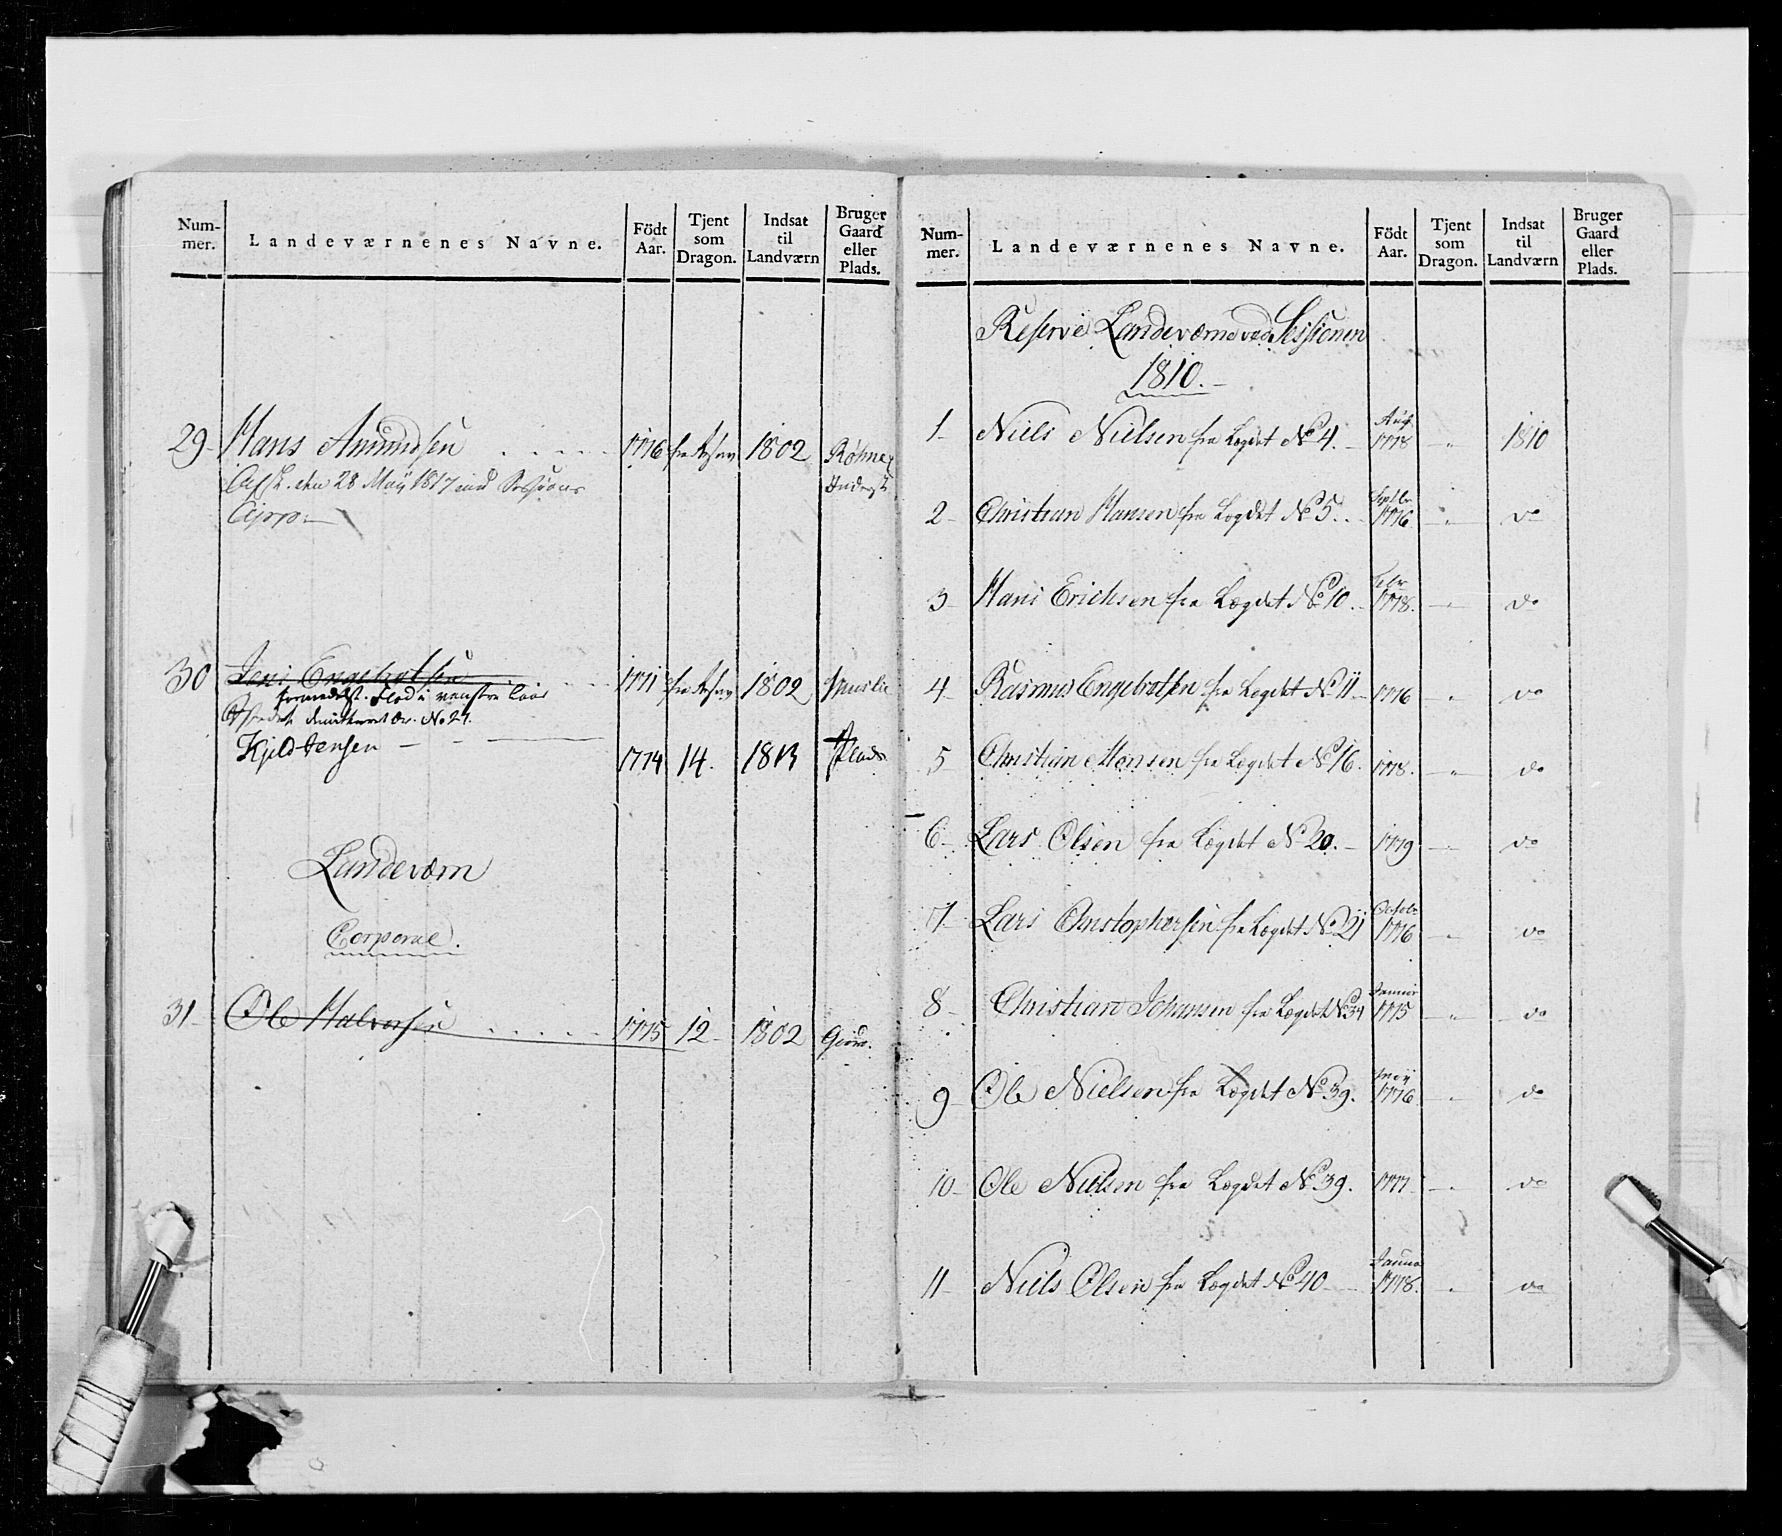 Num-
mer.
Landeværnenes Navne.
Födt
Aar.
Tjent
som
Dragon.
Indsat
til
Landværn
Bruger
Gaard
eller
Plads.
29 Hans Amundsen . . . . . 1776 1802
Afsk. den 28 May 1817 ved Sessions
30 Jens Engebretsen 1771 1802
formedelst Flod i venstre
No 27.
Kjeld Jensen 1774 14. 1813 Plads
Landeværn
Corporal.
31 Ole Halvorsen . . . . . 1775 12 1802
Num-
mer.
Landeværnenes Navne.
Födt
Aar.
Tjent
som
Dragon.
Indsat
til
Landværn
Bruger
Gaard
eller
Plads.
Reserve Landeværne ved Sessionen
1810.
1 Niels Nielsen fra Lægdet No 4. Aug. 1778 " 1810
2 Christian Hansen fra Lægdet No 5. Septbr 1776 " do
3 Hans Erichsen fra Lægdet No 10. Febr 1778. " do
4 Rasmus Engebretsen fra Lægdet No 11 1776 " do
5 Christian Monsen fra Lægdet No 16. 1778. " do
6 Lars Olsen fra Lægdet No 20. 1779 " do
7 Lars Christophersen fra Lægdet No 21 Octobr 1776 " do
8 Christian Johansen fra Lægdet No 34 Januar 1775 " do
9 Ole Nielsen fra Lægdet No 39. May 1776 " do
10 Ole Nielsen fra Lægdet No 39. 1777 " do
11 Niels Olsen fra Lægdet No 40 Januar 1778. " do